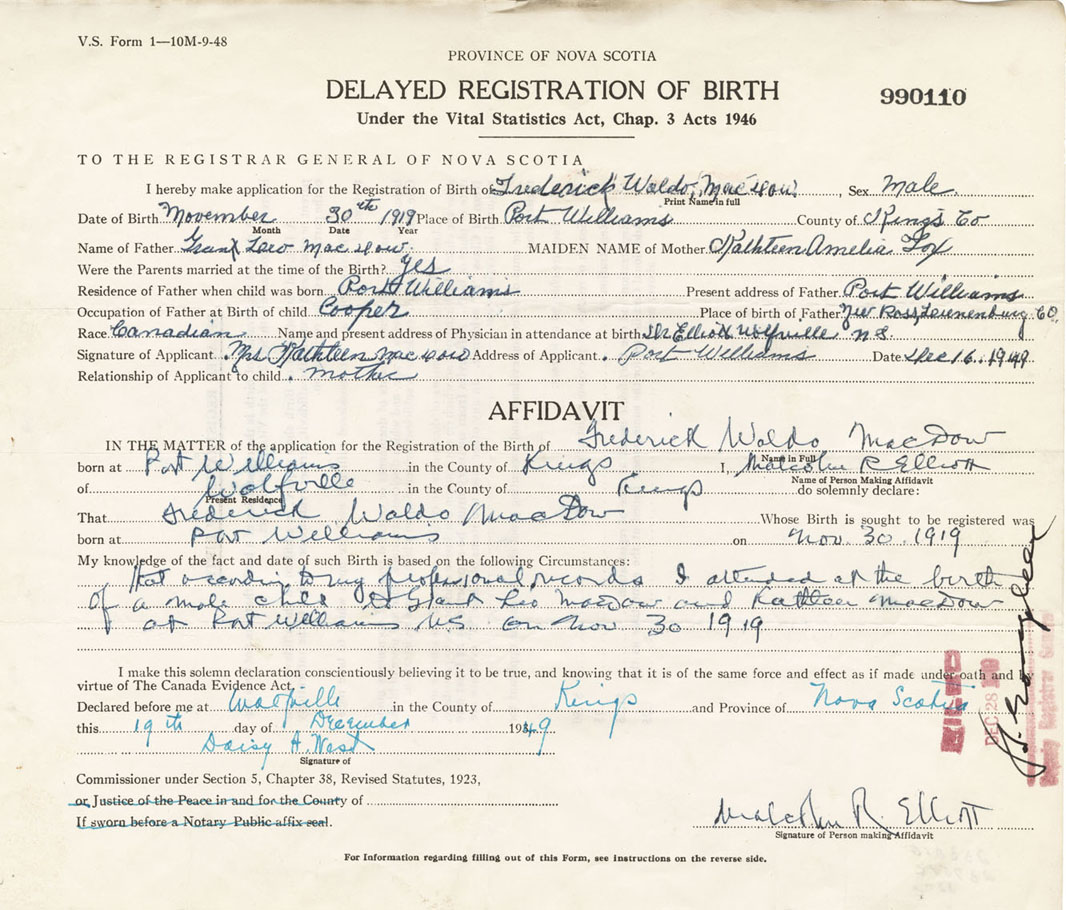 V.S. Form 1—10M-9-48
PROVINCE OF NOVA SCOTIA
DELAYED REGISTRATION OF BIRTH
990110
Under the Vital Statistics Act, Chap. 3 Acts 1946
TO THE REGISTRAR GENERAL OF NOVA SCOTIA
I hereby make application for the Registration of Birth of Frederick Waldo MacDow, Sex Male
Print Name in full
Date of Birth November 30th 1919 Place of Birth Port Williams County of Kings Co
Month Date Year
Name of Father Grant Leo MacDow MAIDEN NAME of Mother Kathleen Amelia Fox
Were the Parents married at the time of the Birth? yes
Residence of Father when child was born Port Williams Present address of Father Port Williams
Occupation of Father at Birth of child Cooper Place of birth of Father New Ross, Lunenburg Co,
Race Canadian Name and present address of Physician in attendance at birth Dr Elliott Wolfville N S
Signature of Applicant Mrs Kathleen MacDow Address of Applicant Port Williams Date Dec 16 1949
Relationship of Applicant to child mother
AFFIDAVIT
IN THE MATTER of the application for the Registration of the Birth of Frederick Waldo MacDow
Name in Full
born at Port Williams in the County of Kings I, Malcolm R Elliott
Name of Person Making Affidavit
of Wolfville in the County of Kings do solemnly declare:
Present Residence
That Frederick Waldo MacDow Whose Birth is sought to be registered was
born at Port Williams on Nov. 30 1919
My knowledge of the fact and date of such Birth is based on the following Circumstances:
that according to my professional records I attended at the birth
of a male child to Grant Leo MacDow and Kathleen MacDow
at Port Williams NS on Nov 30 1919
I make this solemn declaration conscientiously believing it to be true, and knowing that it is of the same force and effect as if made under oath and by
virtue of The Canada Evidence Act.
Declared before me at Wolfville in the County of Kings and Province of Nova Scotia
this 19th day of December 1949
Daisy A. West
Signature of
Commissioner under Section 5, Chapter 38, Revised Statutes, 1923,
or Justice of the Peace in and for the County of
If sworn before a Notary Public affix seal.
Malcolm R. Elliott
Signature of Person making Affidavit
For Information regarding filling out of this Form, see instructions on the reverse side.
DEC 28
Deputy Registrar General